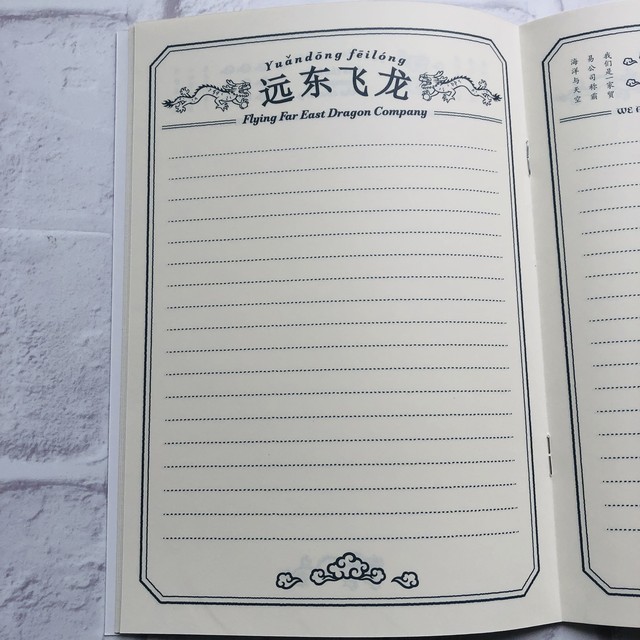 Yuǎndōng fēilóng
远东飞龙
Flying Far East Dragon Company
我们是一家贸
易公司称霸
海洋与天空
WE